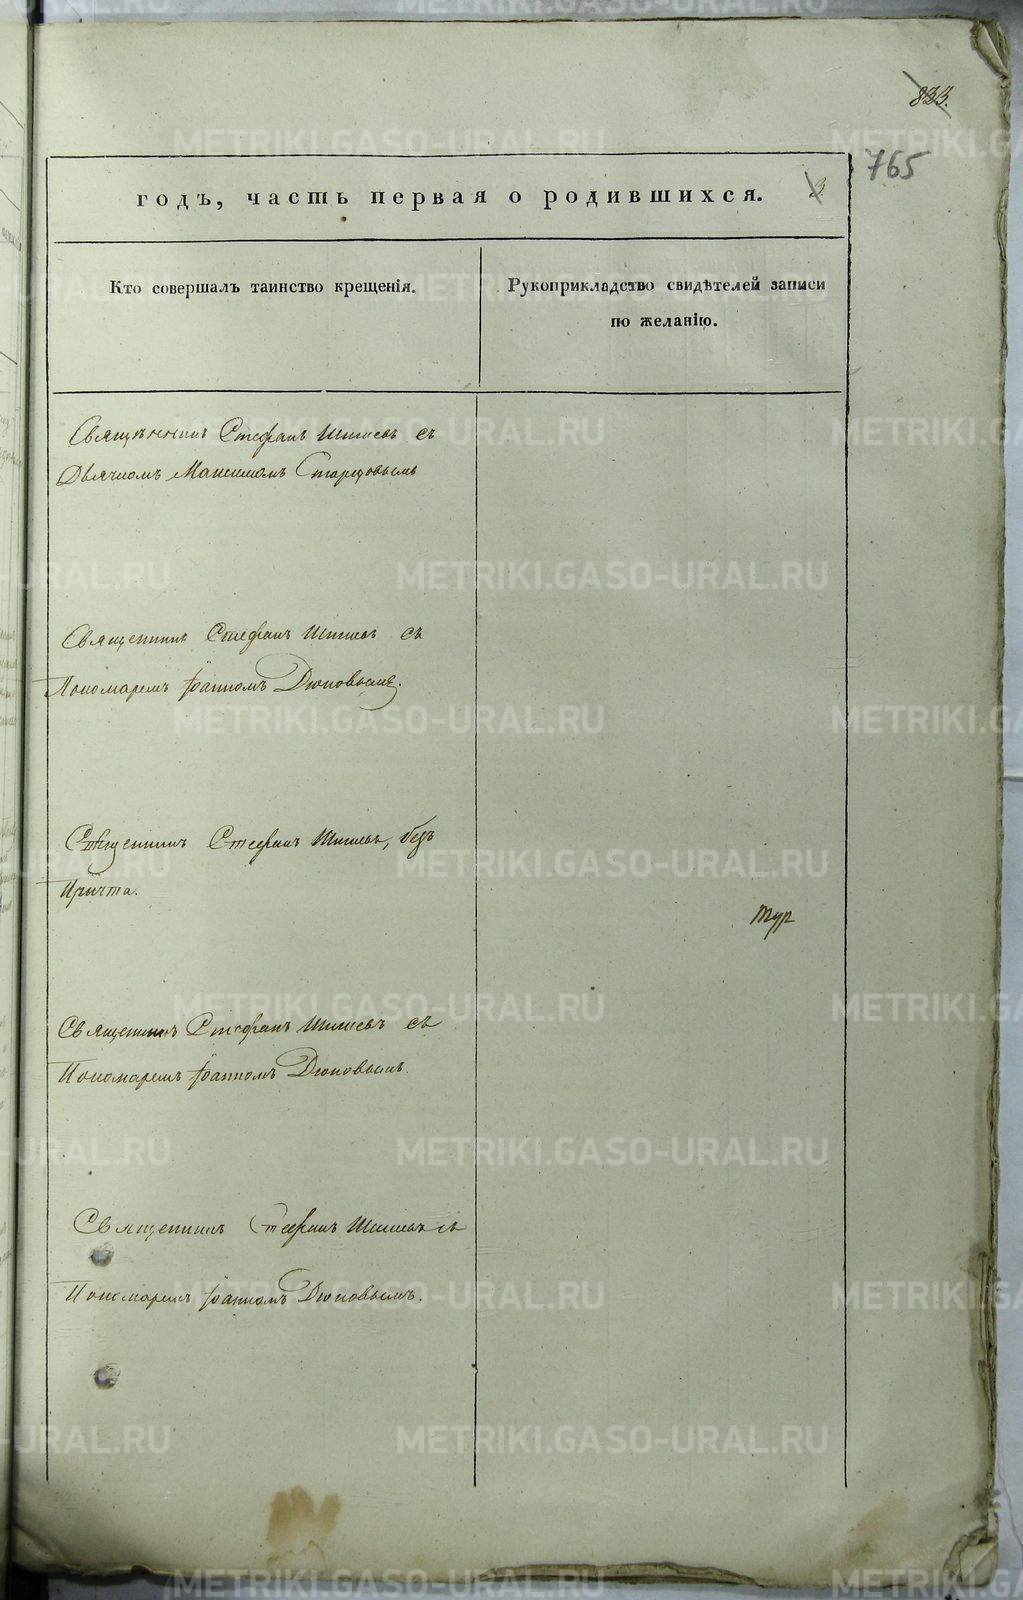 833.
765
годъ, часть первая о родившихся.
3.
Кто совершалъ таинство крещенія.
Рукоприкладство свидѣтелей записи
по желанію.
Священникъ Стефанъ Шишевъ съ
Дьячкомъ Максимомъ Старцовымъ
Священникъ Стефанъ Шишевъ съ
Пономаремъ Іоанномъ Дюповымъ.
Священникъ Стефанъ Шишевъ, безъ
Причта.
Священникъ Стефанъ Шишевъ съ
Пономаремъ Іоанномъ Дюповымъ.
Священникъ Стефанъ Шишевъ съ
Пономаремъ Іоанномъ Дюповымъ.
METRIKI.GASO-URAL.RU